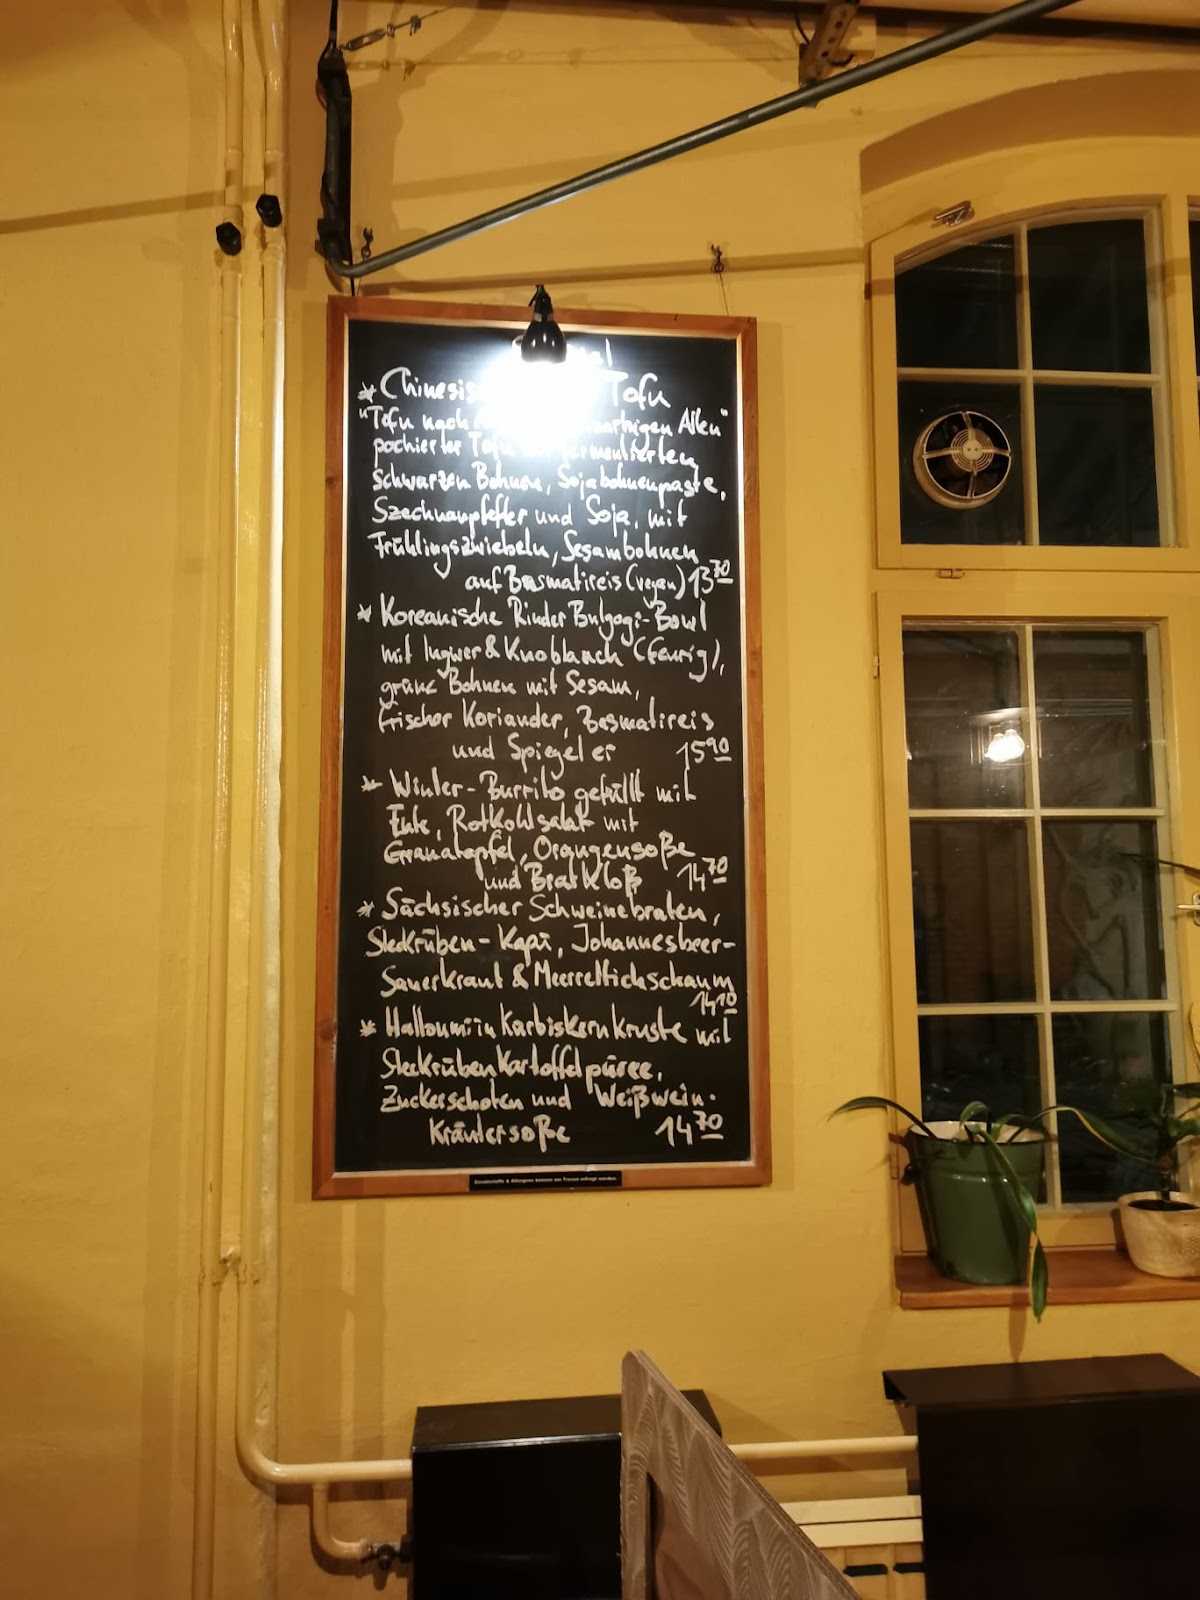 * Chinesis Tofu
"Tofu nach narbigen Alten"
pochierter Tofu fermentierten
schwarzen Bohnen, Sojabohnenpaste,
Szechuanpfeffer und Soja, mit
Frühlingszwiebeln, Sesambohnen
auf Basmatireis (vegan) 13 70
* Koreanische Rinder Bulgogi-Bowl
mit Ingwer & Knoblauch (feurig),
grüne Bohnen mit Sesam,
frischer Koriander, Basmatireis
und Spiegelei 15 90
* Winter-Burrito gefüllt mit
Ente, Rotkohlsalat mit
Granatapfel, Orangensoße
und Bratkloß 14 70
* Sächsischer Schweinebraten,
Steckrüben-Kapü, Johannesbeer-
Sauerkraut & Meerrettichschaum
14 10
* Halloumi in Kürbiskernkruste mit
Steckrüben Kartoffelpüree,
Zuckerschoten und Weißwein-
Kräutersoße 14 70
Zusatzstoffe & Allergene können am Tresen erfragt werden.